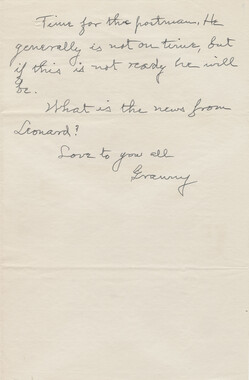 Time for the postman. He
generally is not on time, but
if this is not ready he will
be.
What is the news from
Leonard?
Love to you all
Granny